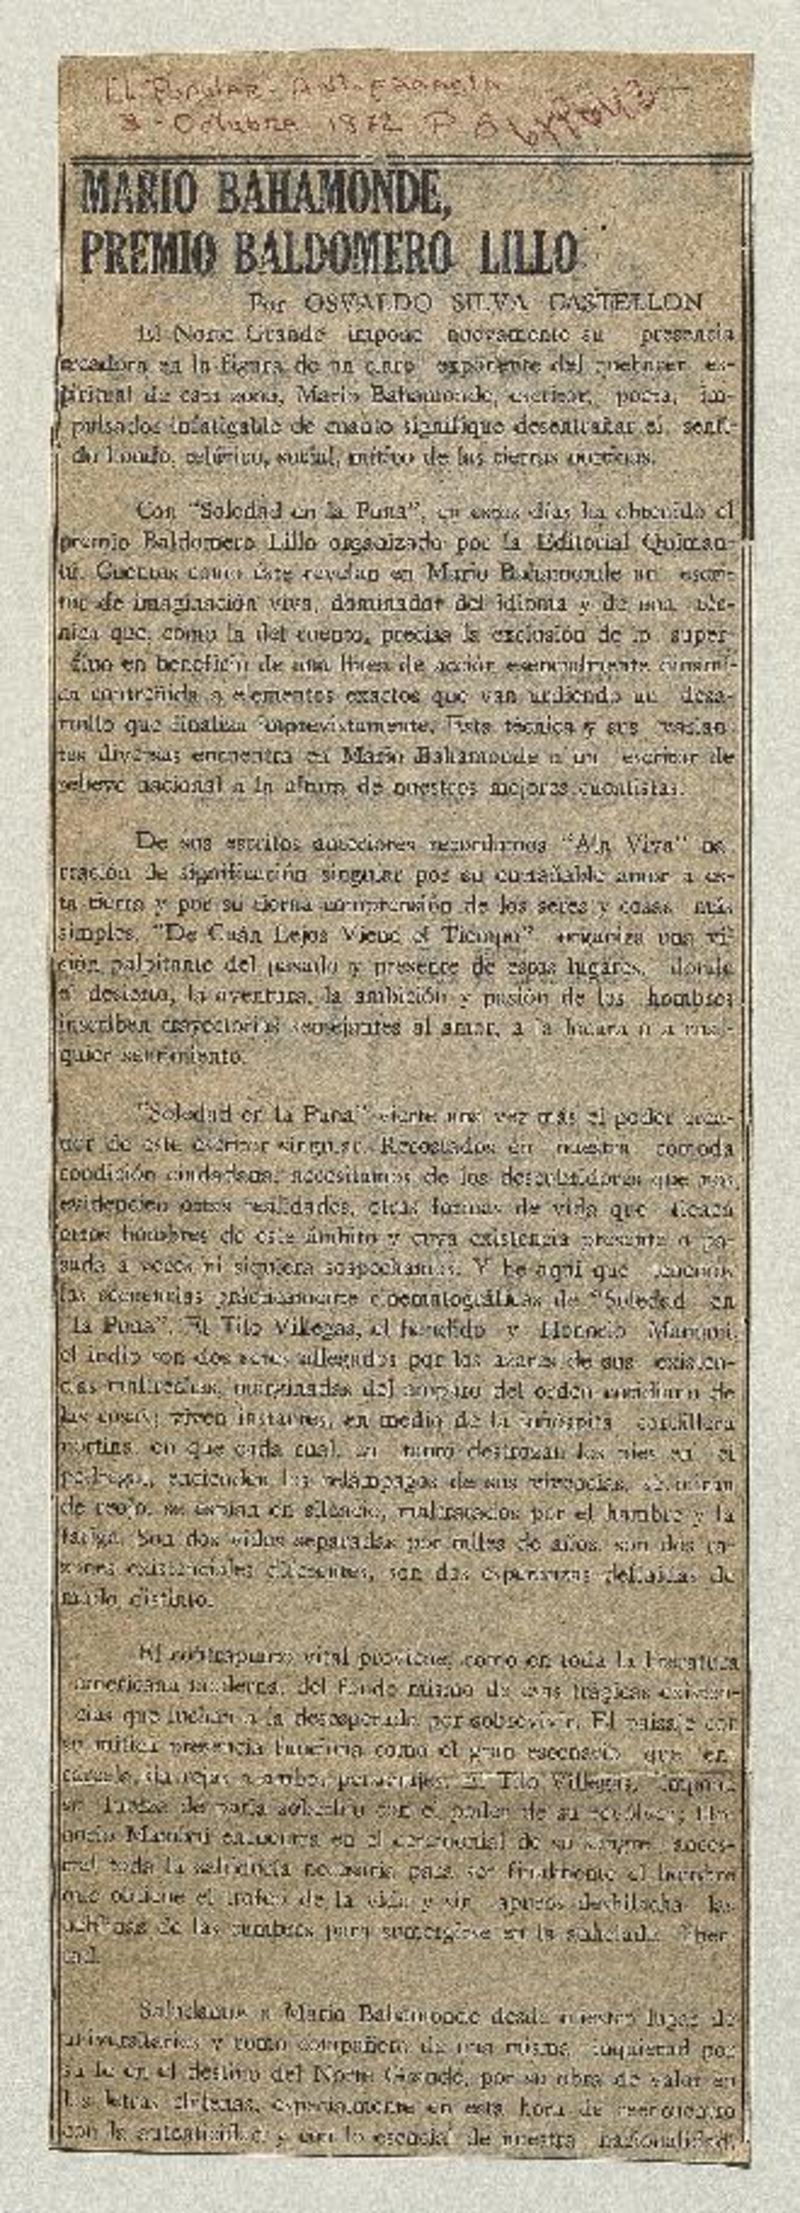 El Popular - Antofagasta
3 - Octubre 1972 P 6
MARIO BAHAMONDE,
PREMIO BALDOMERO LILLO
Por OSVALDO SILVA CASTELLON
El Norte Grande impone nuevamente su presencia
creadora en la figura de un claro exponente del quehacer es-
piritual de esta zona, Mario Bahamonde, escritor, poeta, im-
pulsador infatigable de cuanto signifique desentrañar el senti-
do hondo, telúrico, social, mítico de las tierras nortinas.
Con "Soledad en la Puna", en estos días ha obtenido el
premio Baldomero Lillo organizado por la Editorial Quiman-
tú. Cuentos como éste revelan en Mario Bahamonde un escri-
tor de imaginación viva, dominador del idioma y de una téc-
nica que, como la del cuento, precisa la exclusión de lo super-
fluo en beneficio de una línea de acción esencialmente dinámi-
ca constreñida a elementos exactos que van urdiendo un desa-
rrollo que finaliza imprevistamente. Esta técnica y sus varian-
tes diversas encuentra en Mario Bahamonde a un escritor de
relieve nacional a la altura de nuestros mejores cuentistas.
De sus escritos anteriores recordamos "Ala Viva" na-
rración de significación singular por su entrañable amor a es-
ta tierra y por su tierna comprensión de los seres y cosas más
simples. "De Cuán Lejos Viene el Tiempo" organiza una vi-
sión palpitante del pasado y presente de estos lugares, donde
el desierto, la aventura, la ambición y pasión de los hombres
inscriben trayectorias semejantes al amor, a la locura o a cual-
quier sentimiento.
"Soledad en la Puna" vierte una vez más el poder crea-
dor de este escritor singular. Recostados en nuestra cómoda
condición ciudadana, necesitamos de los descubridores que nos
evidencien otras realidades, otras formas de vida que tienen
otros hombres de este ámbito y cuya existencia presente o pa-
sada a veces ni siquiera sospechamos. Y he aquí que tenemos
las secuencias prácticamente cinematográficas de "Soledad en
la Puna". El Tilo Villegas, el bandido y Honorio Mamani,
el indio son dos seres allegados por los azares de sus existen-
cias maltrechas, marginadas del amparo del orden cotidiano de
las cosas; viven instantes, en medio de la inhóspita cordillera
nortina, en que cada cual, en tanto destrozan los pies en el
pedregal, encienden los relámpagos de sus vivencias, se miran
de reojo, se espían en silencio, maltratados por el hambre y la
fatiga. Son dos vidas separadas por miles de años, son dos ra-
zones existenciales diferentes, son dos esperanzas definidas de
modo distinto.
El contrapunto vital proviene, como en toda la literatura
americana moderna, del fondo mismo de esas trágicas existen-
cias que luchan a la desesperada por sobrevivir. El paisaje con
su mítica presencia funciona como el gran escenario que en-
carcela sin rejas a ambos personajes. El Tilo Villegas, impone
su fuerza de paria soberbio con el poder de su revólver; Ho-
norio Mamani encuentra en el ceremonial de su sangre ances-
tral toda la sabiduría necesaria para ser finalmente el hombre
que obtiene el trofeo de la vida y sin apuros deshilacha las
neblinas de las cumbres para sumergirse en la anhelada liber-
tad.
Saludamos a Mario Bahamonde desde nuestro lugar de
universitarios y como compañero de una misma inquietud por
su fe en el destino del Norte Grande, por su obra de valor en
las letras chilenas, especialmente en esta hora de reencuentro
con la autenticidad y con lo esencial de nuestra nacionalidad.